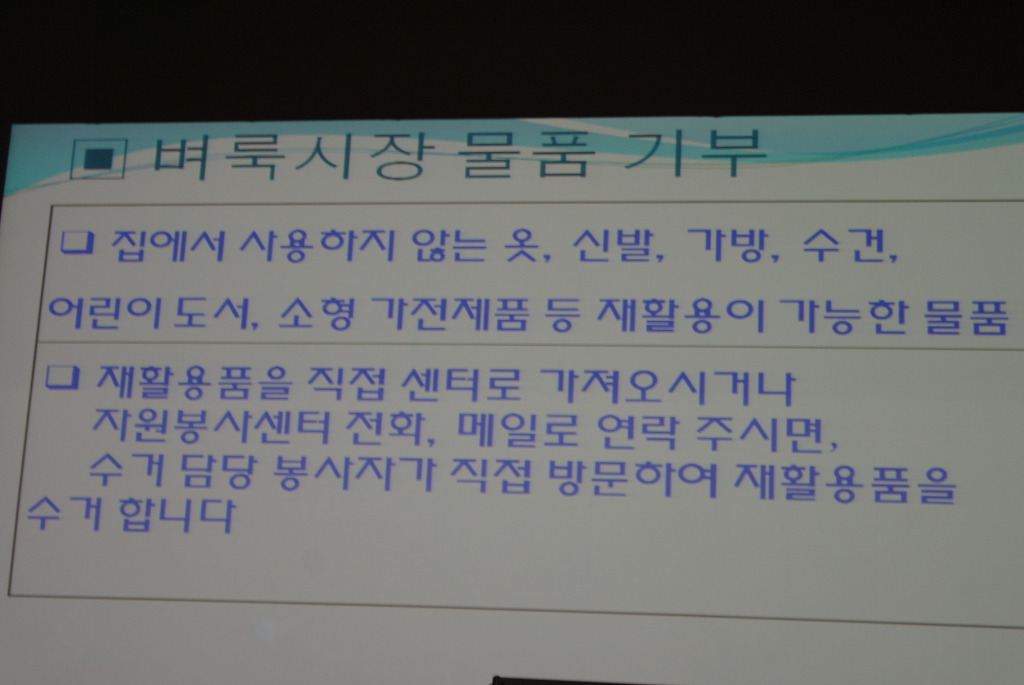 ▣ 벼룩시장 물품 기부
❑ 집에서 사용하지 않는 옷, 신발, 가방, 수건,
어린이 도서, 소형 가전제품 등 재활용이 가능한 물품
❑ 재활용품을 직접 센터로 가져오시거나
자원봉사센터 전화, 메일로 연락 주시면,
수거 담당 봉사자가 직접 방문하여 재활용품을
수거 합니다